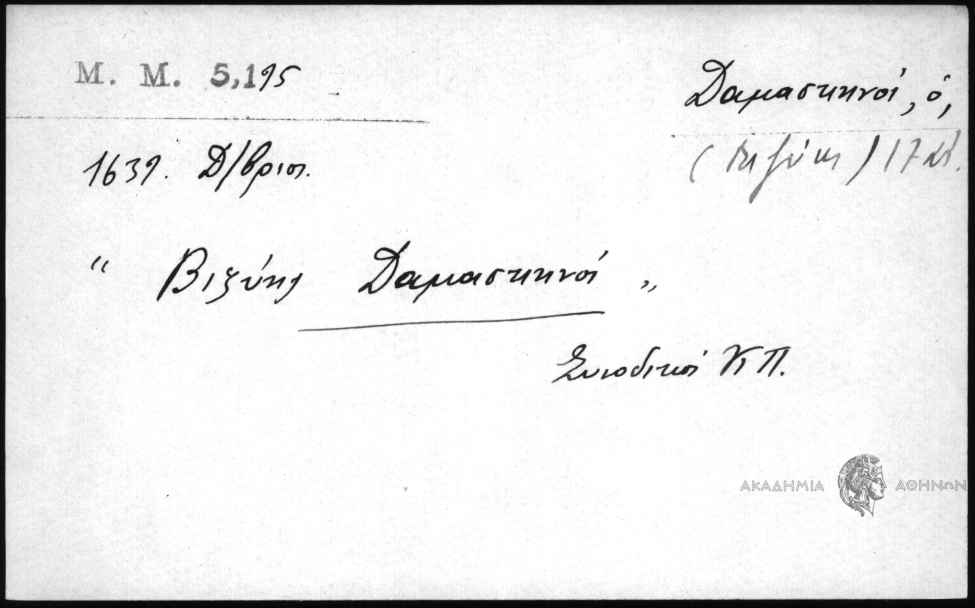 M. M. 5,195
Δαμασκηνός, ὁ,
(Βιζύης) 17 αἰ.
1639. Δ/βριος.
“ Βιζύης Δαμασκηνός „
Συνοδικός ΚΠ.
ΑΚΑΔΗΜΙΑ ΑΘΗΝΩΝ